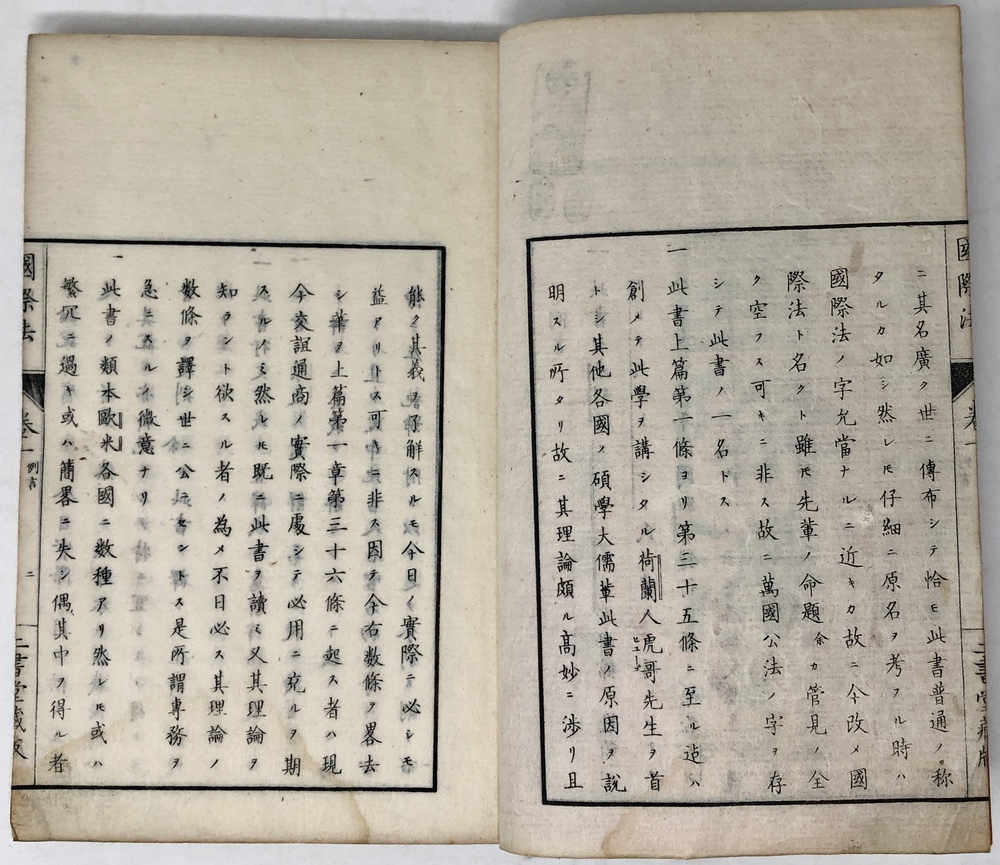 國際法
卷一
二書堂藏版
ニ其名廣ク世ニ傳布シテ恰モ此書普通ノ称
タルカ如シ然レモ仔細ニ原名ヲ考フル時ハ
國際法ノ字允當ナルニ近キカ故ニ今改メ國
際法ト名クト雖モ先輩ノ命題余カ管見ノ全
ク空フス可キニ非ス故ニ萬國公法ノ字ヲ存
シテ此書ノ一名トス
一此書上篇第一條ヨリ第三十五條ニ至ル迠ハ
創メテ此學ヲ講シタル荷蘭人虎哥先生ヲ首
トシ其他各國ノ碩學大儒輩此書ノ原因ヲ說
明スル所タリ故ニ其理論頗ル高妙ニ渉リ且
能ク其義ヲ了解スルモ今日ノ實際ニ必シモ
益アリトス可キニ非ス因テ今右数條ヲ畧去
シ筆ヲ上篇第一章第三十六條ニ起ス者ハ現
今交誼通商ノ實際ニ處シテ必用ニ充ルヲ期
スルノミ然レモ既ニ此書ヲ讀ミ又其理論ヲ
知ラント欲スル者ノ為メ不日必ス其理論ノ
数條ヲ譯シ世ニ公ニセントス是所謂專務ヲ
急ニスルノ微意ナリ
一此書ノ類本歐米各國ニ数種アリ然レモ或ハ
繁冗ニ過キ或ハ簡畧ニ失シ偶其中ヲ得ル者
國際法
卷一
例言
二
二書堂藏版